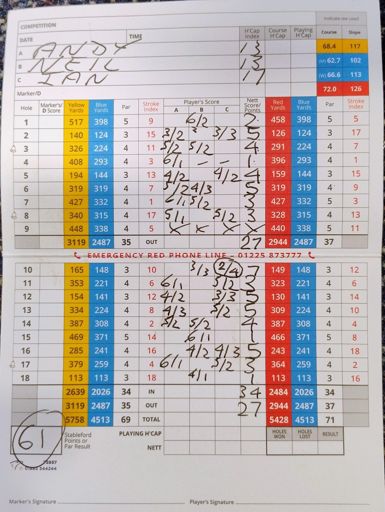 COMPETITION
Indicate tee used
DATE TIME H'Cap Index Course H'Cap Playing H'Cap Course Slope
A ANDY 13 68.4 117
B NEIL 13 62.7 102
C IAN 17 66.6 113
Marker/D 72.0 126
Hole Marker's/D Score Yellow Yards Blue Yards Par Stroke Index Player's Score A B C Nett Score/Points Red Yards Blue Yards Par Stroke Index
1 517 398 5 9 6/2 2 458 398 5 5
2 140 124 3 15 3/2 3/3 5 126 124 3 17
3 326 224 4 11 5/2 5/2 4 291 224 4 7
4 408 293 4 3 6/1 - - 1 396 293 4 1
5 194 144 3 13 4/2 4/2 4 159 144 3 15
6 319 319 4 7 5/2 4/3 5 319 319 4 9
7 427 332 4 1 6/1 5/2 3 427 332 5 3
8 340 315 4 17 5/1 5/2 3 328 315 4 13
9 448 338 4 5 X X X X 440 338 5 11
3119 2487 35 OUT 27 2944 2487 37
EMERGENCY RED PHONE LINE – 01225 873777
10 165 148 3 10 3/3 2/4 7 149 148 3 12
11 353 221 4 6 6/1 5/2 3 323 221 4 6
12 154 141 3 12 4/2 3/3 5 130 141 3 14
13 334 224 4 8 4/3 5/2 5 309 224 4 10
14 387 308 4 2 5/2 5/2 4 387 308 4 4
15 469 371 5 14 6/1 1 466 371 5 8
16 285 241 4 16 4/2 4/3 5 243 241 4 18
17 379 259 4 4 6/1 5/2 3 364 259 4 2
18 113 113 3 18 4/1 1 113 113 3 16
2639 2026 34 IN 34 2484 2026 34
3119 2487 35 OUT 27 2944 2487 37
5758 4513 69 TOTAL 5428 4513 71
61 Stableford Points or Par Result PLAYING H'CAP NETT HOLES WON HOLES LOST RESULT
Marker's Signature Player's Signature